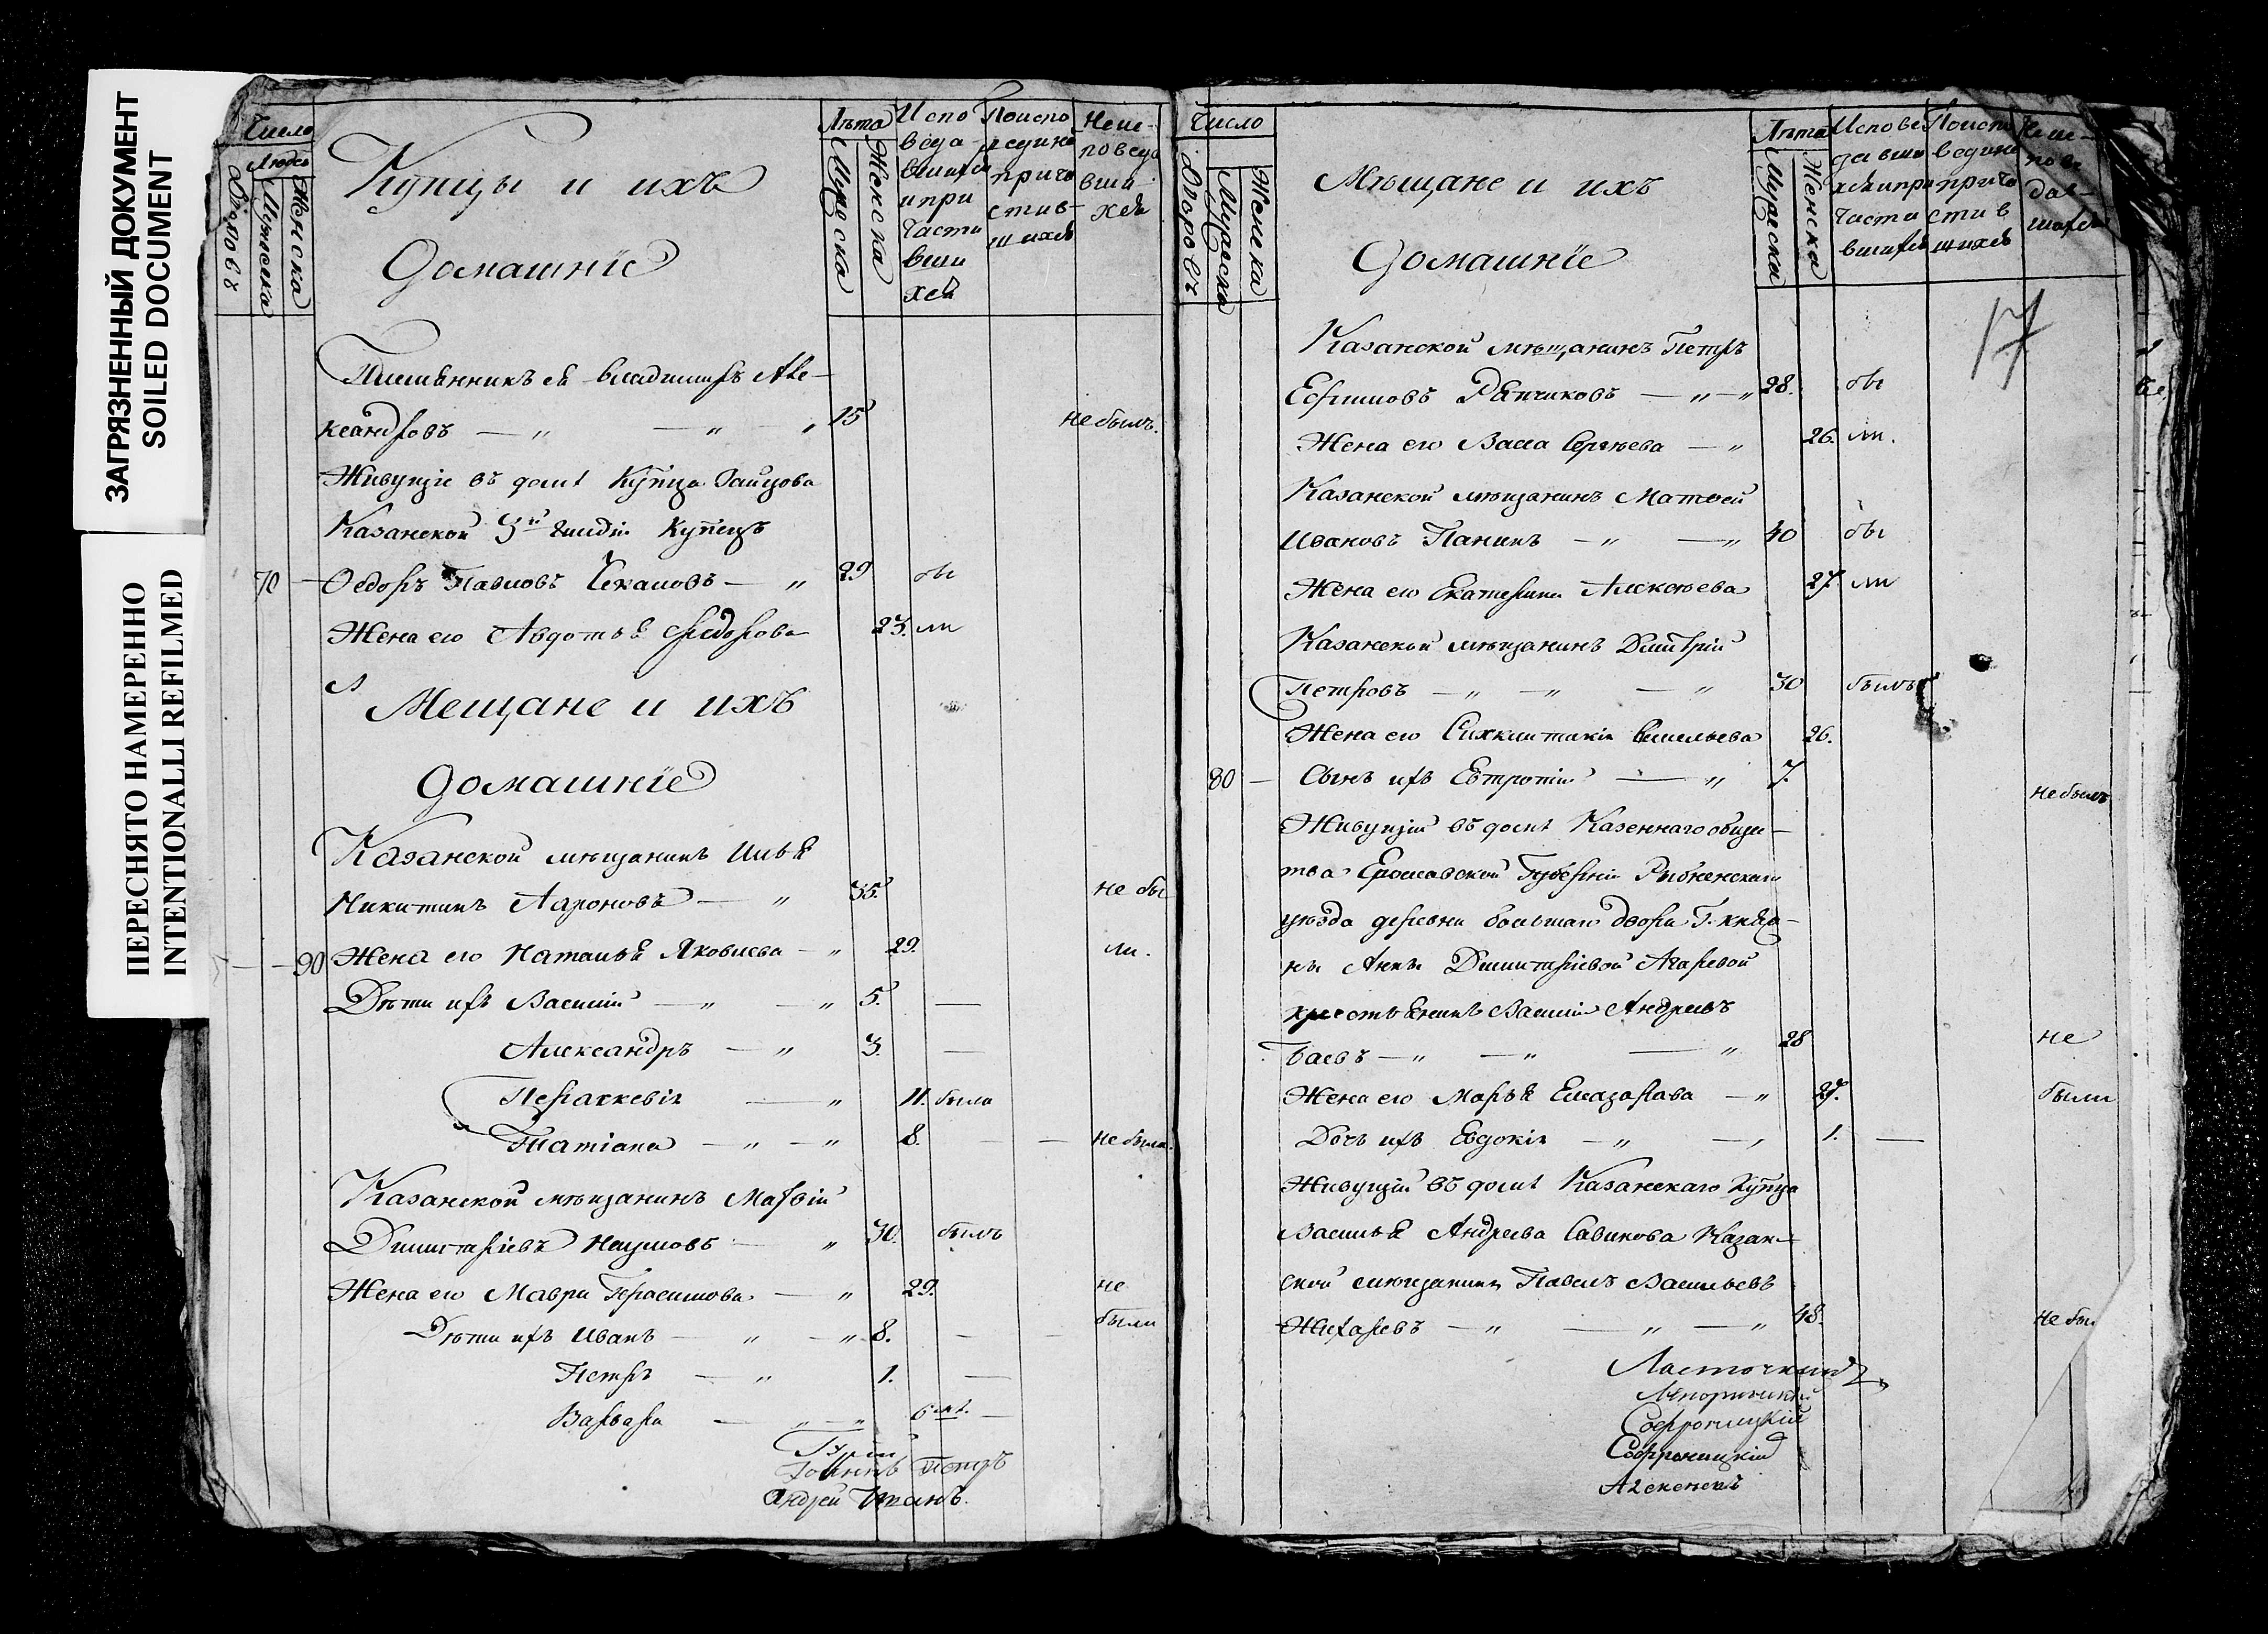 ЗАГРЯЗНЕННЫЙ ДОКУМЕНТ
SOILED DOCUMENT
ПЕРЕСНЯТО НАМЕРЕННО
INTENTIONALLI REFILMED
Число
Людей
Дворовъ
Мужеска
Женска
Купцы и ихъ
Домашніе
Лѣта
Мужеска
Женска
Испо
веда
вшихся
и при
части
вши
хся
По испо
ведник
приче
стив
шихся
Не ис-
поведа
вши
хся
Племянникъ ея Владимиръ Але-
ксандровъ — „ — „ „ 15 не былъ.
Живущіе въ домѣ Купца Зайцова
Казанской 3й гилдіи Купецъ
70 — Ѳедоръ Павловъ Чекановъ — „ 29 бы
Жена его Авдотья Ѳедорова 23. ли
Мещане и ихъ
Домашніе
Казанской мѣщанинъ Илья
Никитинъ Аароновъ — „ 35. не бы
— - 90 Жена его Наталья Яковлева — „ 29. ли.
Дѣти ихъ Василій — „ — „ 5. —
Александръ — „ 3. —
Параскевія — „ 11. была
Татіана — „ — „ 8. — не была.
Казанской мѣщанинъ Матвій
Димитріевъ Наумовъ — „ 30. былъ
Жена его Мавра Герасимова — „ 29. не
были
Дѣти ихъ Иванъ — „ — „ 8. —
Петръ — „ 1. —
Варвара — „ — „ 6 —
Гурій
Іоаннъ Петръ
Андрей Іоаннъ.
Число
Дворовъ
Мужеска
Женска
Мѣщане и ихъ
Домашніе
Лѣта
Мужеска
Женска
Испове
давши
хся и при
части
вшихся
По испо
ведник
приче
стив
шихся
Не ис-
пове
дав-
шихся
17
Казанской мѣщанинъ Петръ
Ефимовъ Репчиковъ — „ — „ 28. бы
Жена его Васса Сергѣева — „ 26. ли.
Казанской мѣщанинъ Матвей
Ивановъ Панинъ — „ — „ 40 бы
Жена его Екатерина Алексѣева 27. ли
Казанской мѣщанинъ Дмитрій
Петровъ — „ — „ — „ 30 былъ
Жена его Васильева 26.
80 — Сынъ ихъ Евтропій — „ 7. не былъ
Живущій въ домѣ Казеннаго обще-
тва Ерославской Губерніи Рыбненскаго
уѣзда деревни большаго двора Г. княж-
ны Анны Димитріевой
крестьянинъ Василій Андреевъ
Баевъ — „ — „ — „ 28 не
Жена его Марья Елеазарова — „ 27. были
Дочь ихъ Евдокія — „ — „ 1. —
Живущій въ домѣ Казанскаго Купца
Василья Андреева Савинова Казан-
ской мѣщанинъ Павелъ Васильевъ
Жихаревъ — „ — „ — „ 48. не бы
Ласточкинъ
Софроницкій
Софроницкій